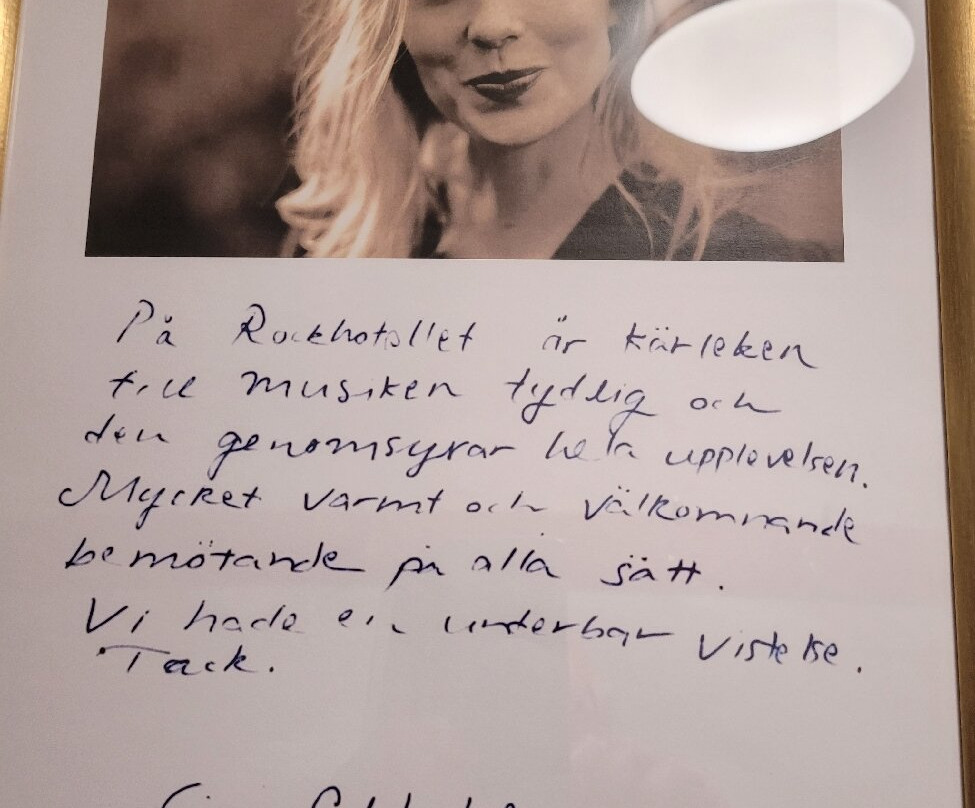 På Rockhotellet är kärleken
till musiken tydlig och
den genomsyrar hela upplevelsen.
Mycket varmt och välkomnande
bemötande på alla sätt.
Vi hade en underbar vistelse.
Tack.